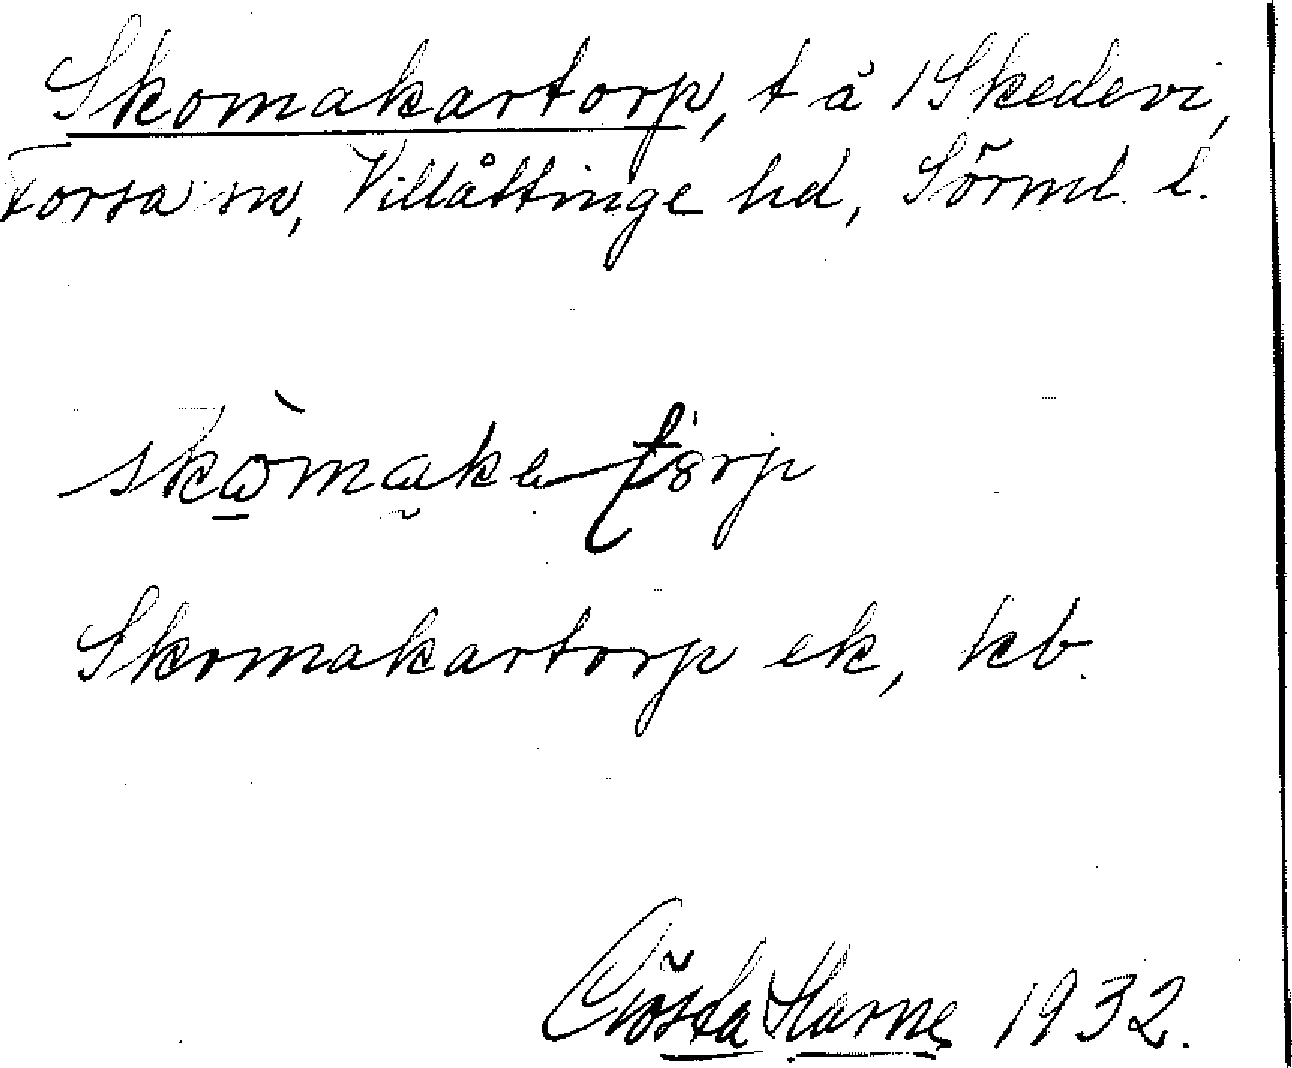 Skomakartorp, t å 1 Skedevi,
Forsa sn, Villåttinge hd, Sörml. l.
Skomakartorp ek, kb.
Gösta Harne 1932.